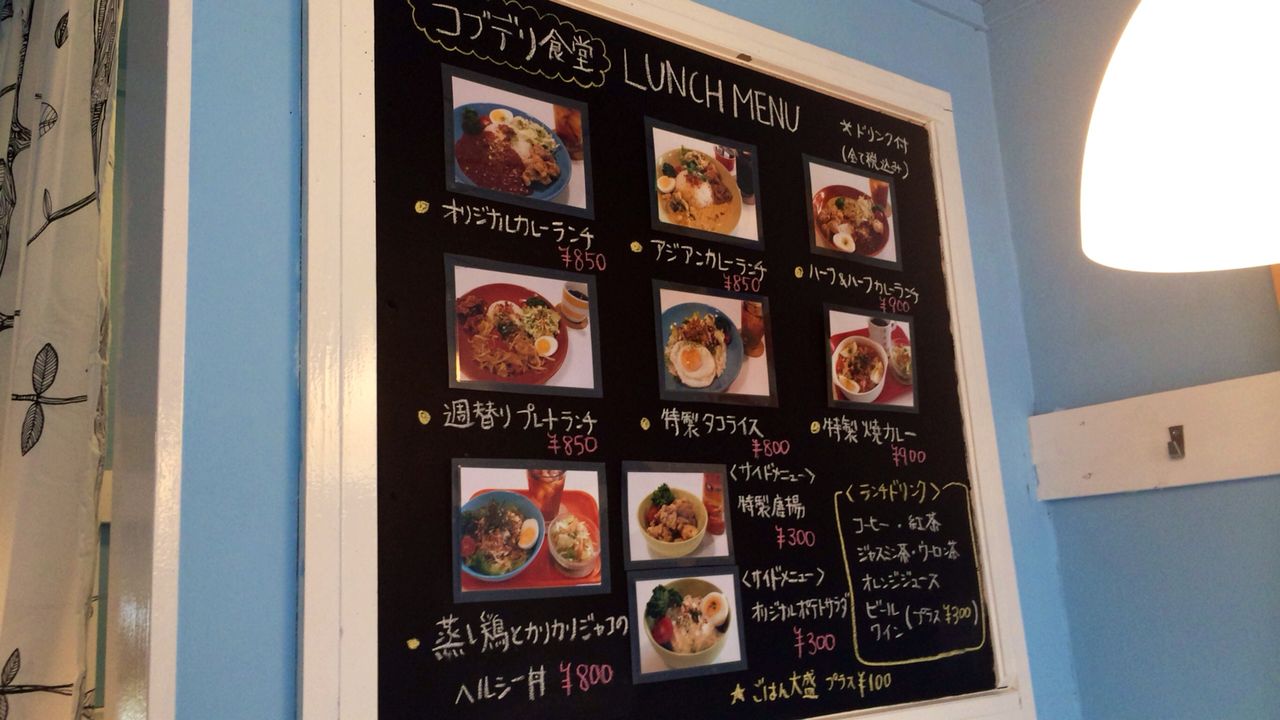 コブデリ食堂 LUNCH MENU
*ドリンク付
(全て税込み)
オリジナルカレーランチ
¥850
アジアンカレーランチ
¥850
ハーフ&ハーフカレーランチ
¥900
週替りプレートランチ
¥850
特製タコライス
¥800
特製焼カレー
¥900
蒸し鶏とカリカリジャコの
ヘルシー丼 ¥800
<サイドメニュー>
特製唐揚
¥300
<サイドメニュー>
オリジナルポテトサラダ
¥300
<ランチドリンク>
コーヒー・紅茶
ジャスミン茶・ウーロン茶
オレンジジュース
ビール
ワイン (プラス¥300)
★ごはん大盛 プラス¥100